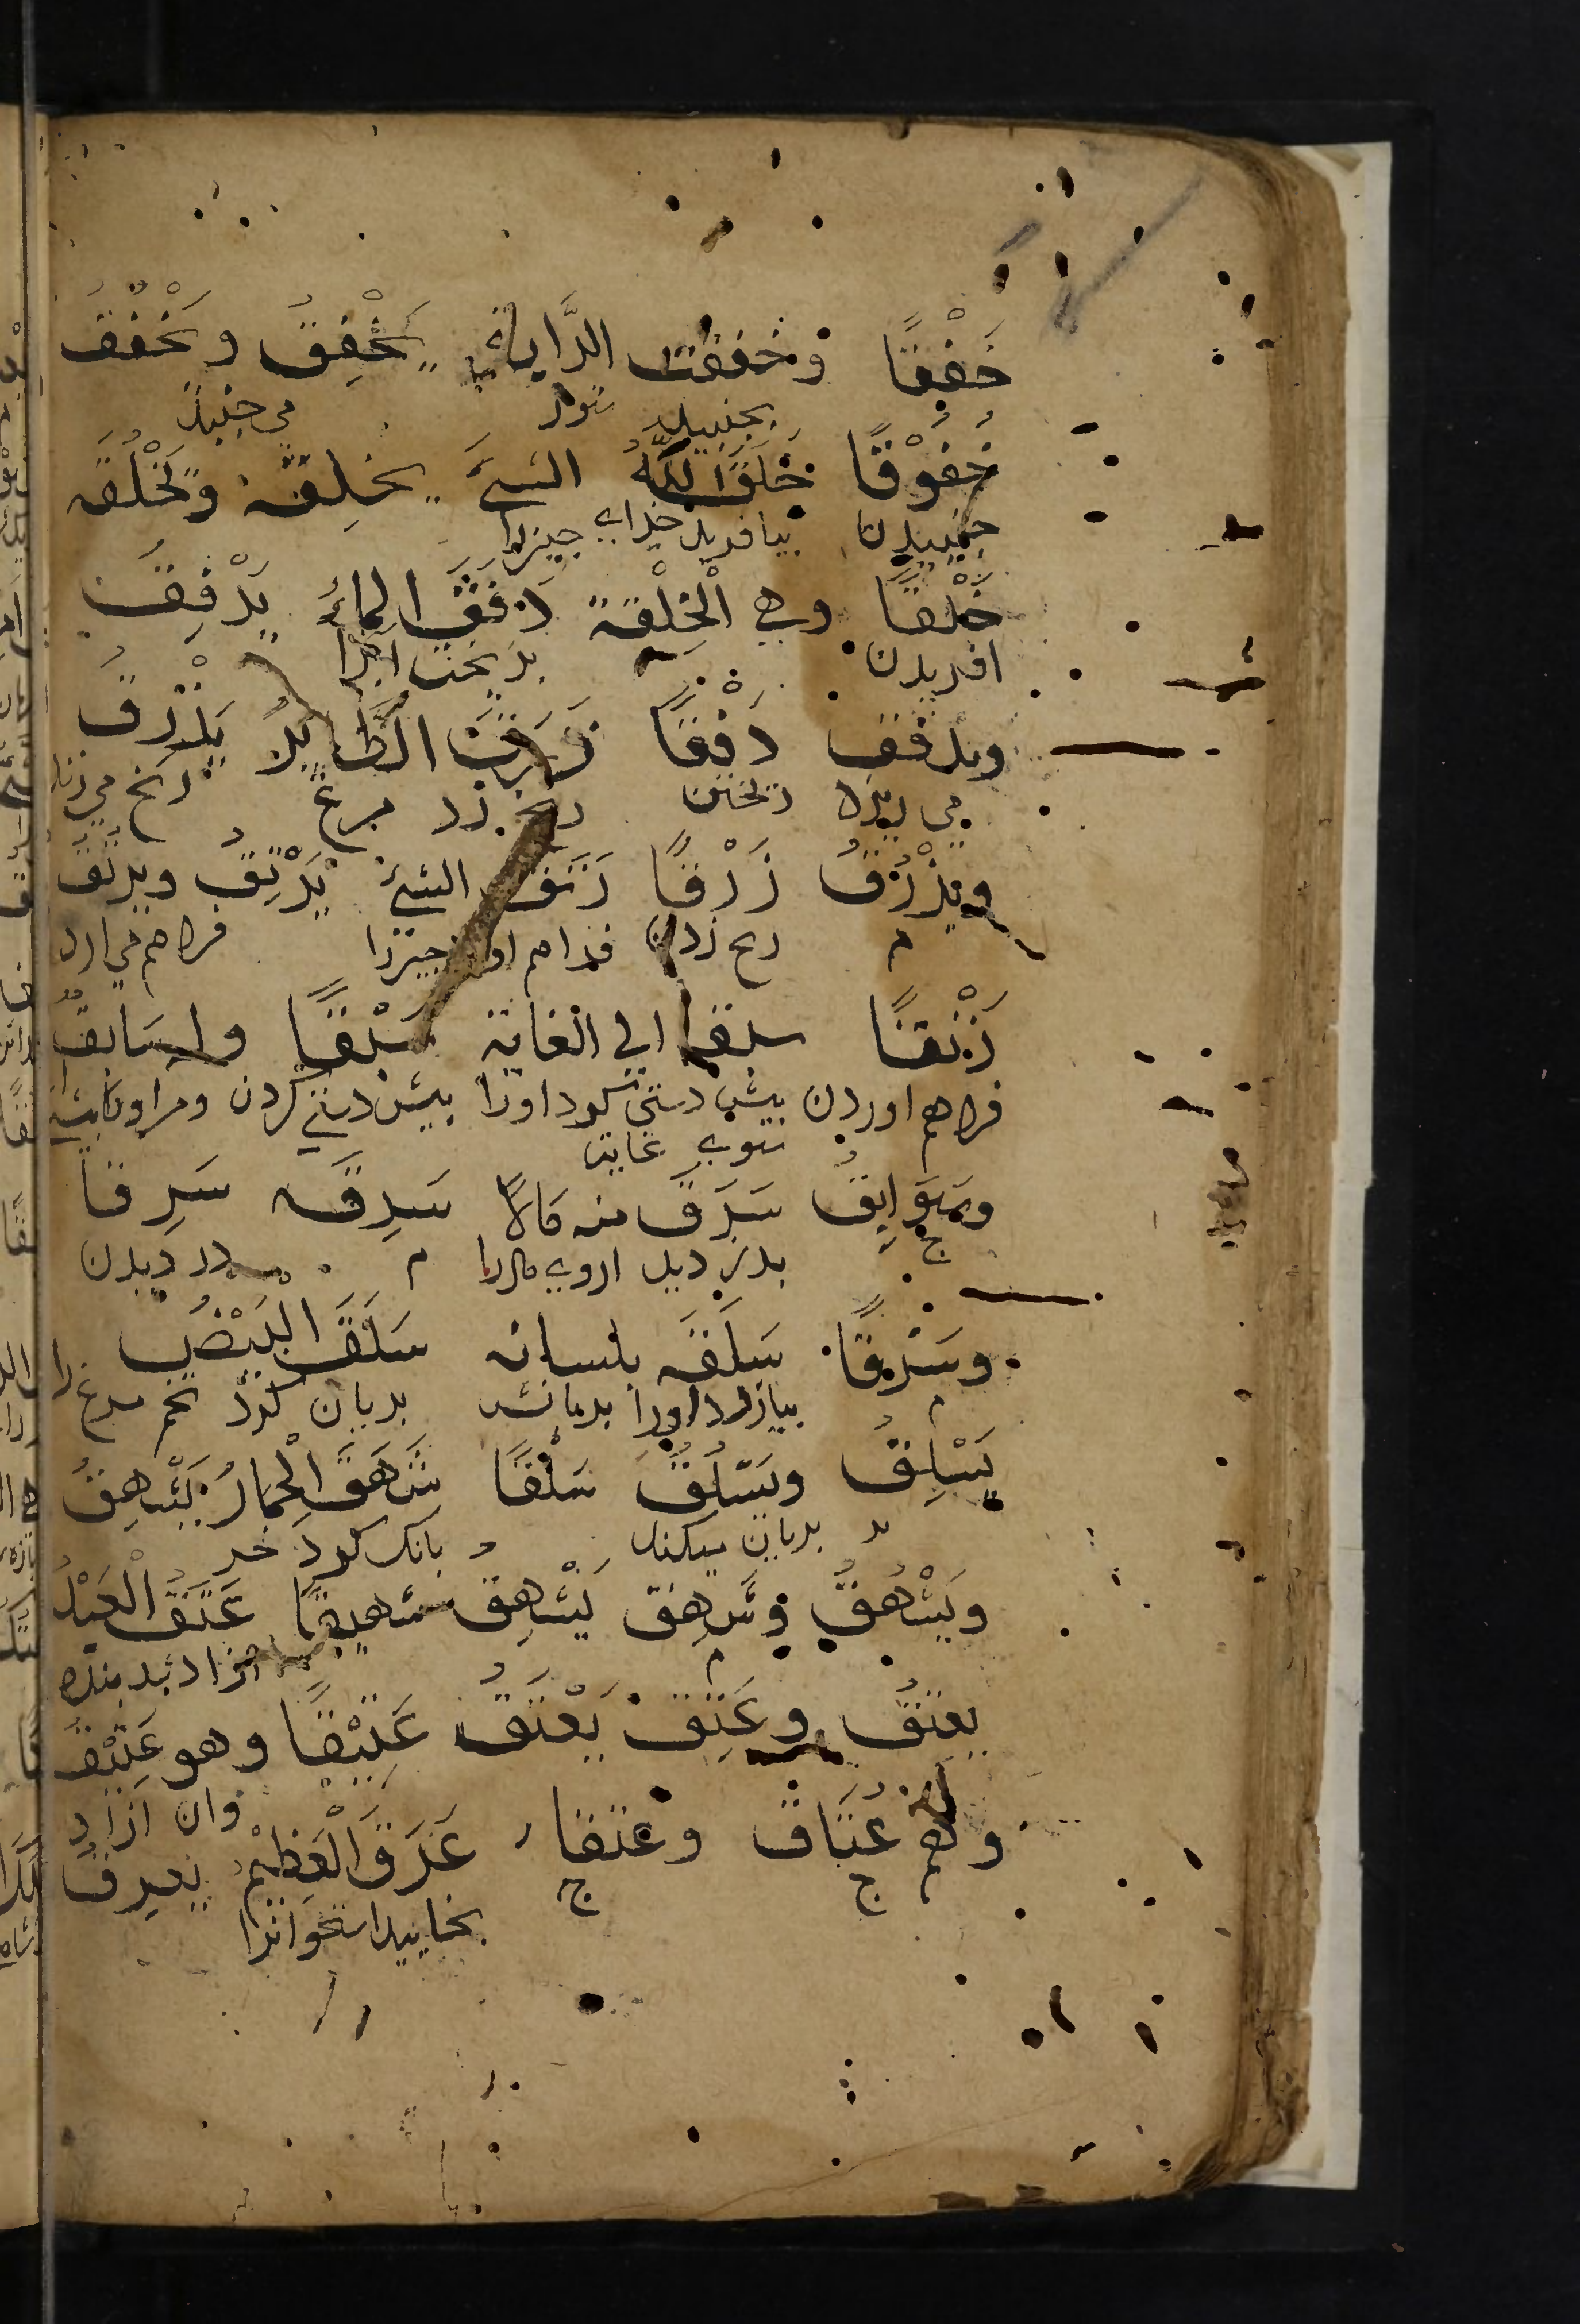 خَفْقًا وخفقت الرَّاية يَخْفِقُ و يَخْفُقُ
بجنبيد می جنبد
خُفُوْقًا خَلَقَ اللّٰهُ الشئَ يخلِقه ويَخْلُقه
جنبيدن بيافريد خداى چيزرا
خَلْقًا وهي الْخِلْقَة دَفَقَ الماءَ يَدْفِقُ
افريدن بريخت ابرا
ويدفق دَفْقًا زَرَقَ الطَّايرُ يَزْرِقُ
می ريزد ريختن زد مرغ می زند
ويَزْرُقُ زَرْقًا زَنَق الشئَ يَزْنِقُ ويزنق
م زدن فراهم اورد چيزرا فراهم می ارد
زَنْقًا سبقه الي الغاية سَبْقًا وله سَابقُ
فراهم اوردن پيش دستی كرد اورا پيش دستی كردن ومر اورا
سوی غايت
وسَوَابِقُ سَرَقَ منه مَالاً سَرِقَه سَرِقًا
ج بدزديد ازوی مالرا م دزديدن
وسَرْقًا سَلَقَه بلسانه سَلَقَ البَيْضَ
م بيازرد اورا بزبانش بريان كرد تخم مرغ را
يَسْلِقُ ويَسْلُقُ سَلْقًا شَهَقَ الْحِمَارُ يَشْهِقُ
بريان ميكند بانك كرد خر
ويَشْهُقُ وشَهِقَ يَشْهِق شهيقًا عَتَقَ الْعَبْدُ
م ازاد شد بنده
يعتقُ وعَتِقَ يَعْتَقُ عَتِيْقًا وهو عَتِيْقٌ
وان ازاد
وهم عُتَّاقٌ وعتقاء عَرَقَ الْعَظْمَ يَعرِقُ
ج ج بخاييد استخوانرا